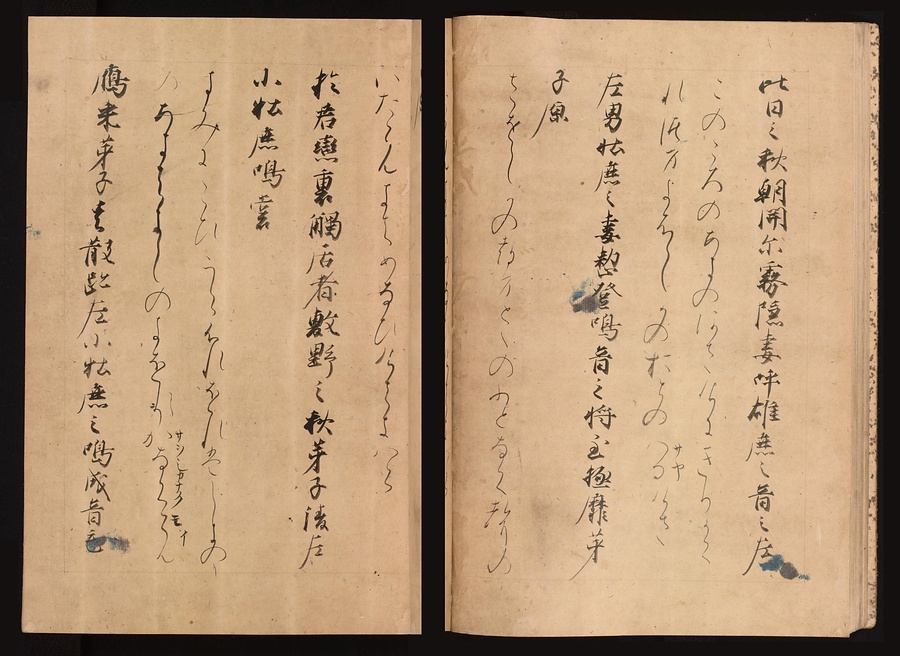 此日之秋朝開尓霧隠妻呼雄鹿之音之左
このころのあきのあさけにきりかく
れつまよふしかのおとのはるけさ
サヤ
左男牡鹿之妻整登鳴音之将至極靡芽
子原
さをしかのつまととのふとなくこゑの
いたらんきはめなひけはきはら
於君戀裏觸居者敷野之秋芽子凌左
小牡鹿鳴裳
きみにこひうらふれをれはしきの
のあきはきしのきさをしかなくらん
鴈来芽子者散跡左小牡鹿之鳴成音毛